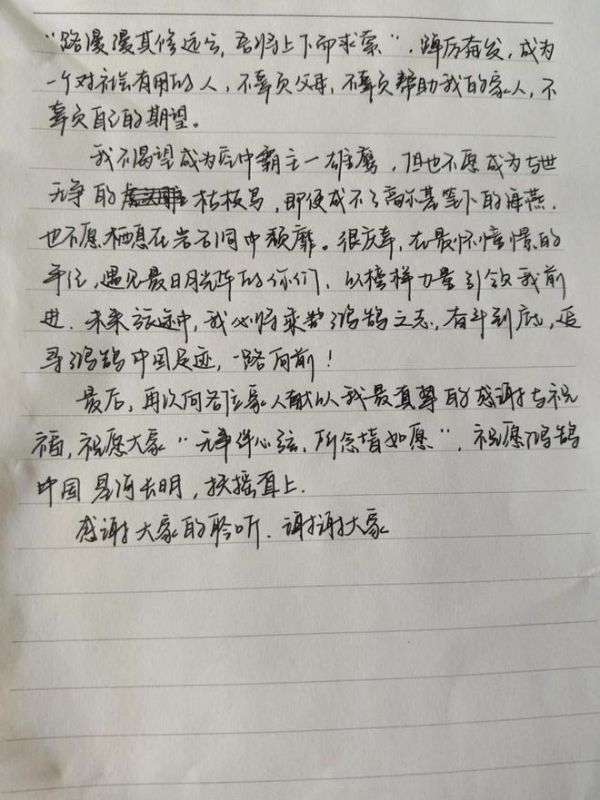 “路漫漫其修远兮，吾将上下而求索”，踔厉奋发，成为
一个对社会有用的人，不辜负父母，不辜负帮助我的家人，不
辜负自己的期望。
我不渴望成为空中霸主—雄鹰，但也不愿成为与世
无争的枯枝鸟，即便成不了高尔基笔下的海燕，
也不愿栖息在岩石洞中颓靡。很庆幸，在最怀憧憬的
年纪，遇见最日月光阵的你们，以榜样力量引领我前
进．未来征途中，我必将乘势鸿鹄之志，奋斗到底，追
寻鸿鹄中国足迹，一路向前！
最后，再次向各位家人献以我最真挚的感谢与祝
福，祝愿大家“无事绊心弦，所念皆如愿”，祝愿鸿鹄
中国星河长明，扶摇直上．
感谢大家的聆听．谢谢大家